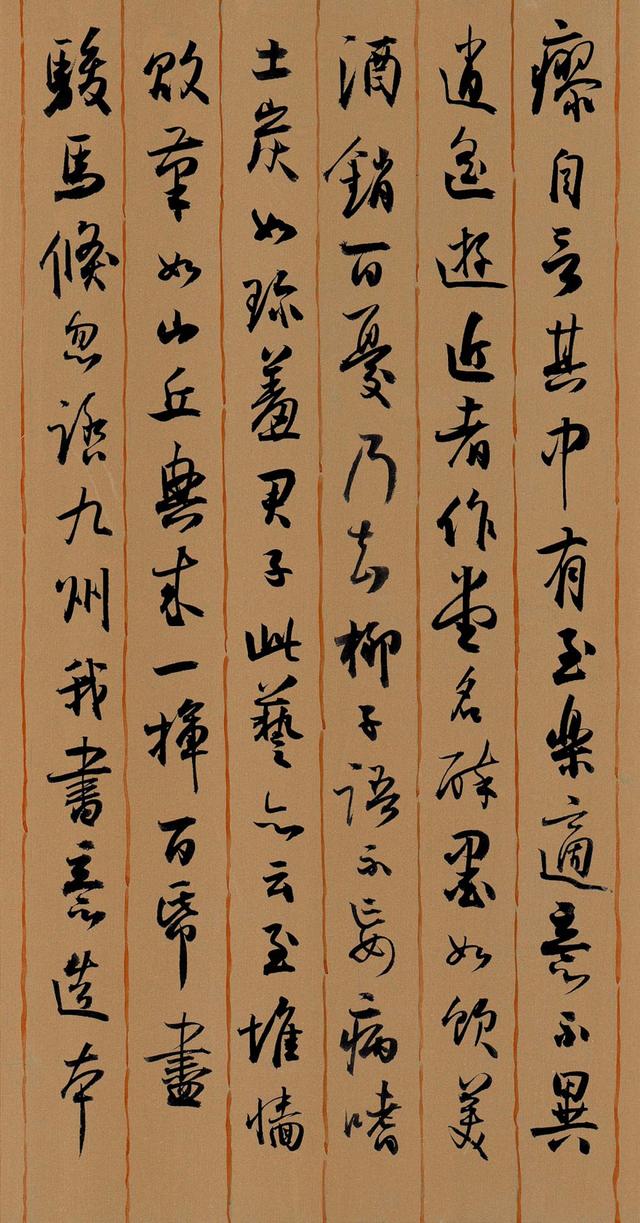 瘳自言其中有至樂適意不異
逍遙遊近者作堂名醉墨如飲美
酒銷百憂乃知柳子語不妄病嗜
土炭如珍羞君于此藝亦云至堆牆
敗筆如山丘興來一揮百帋盡
駿馬倏忽踏九州我書意造本